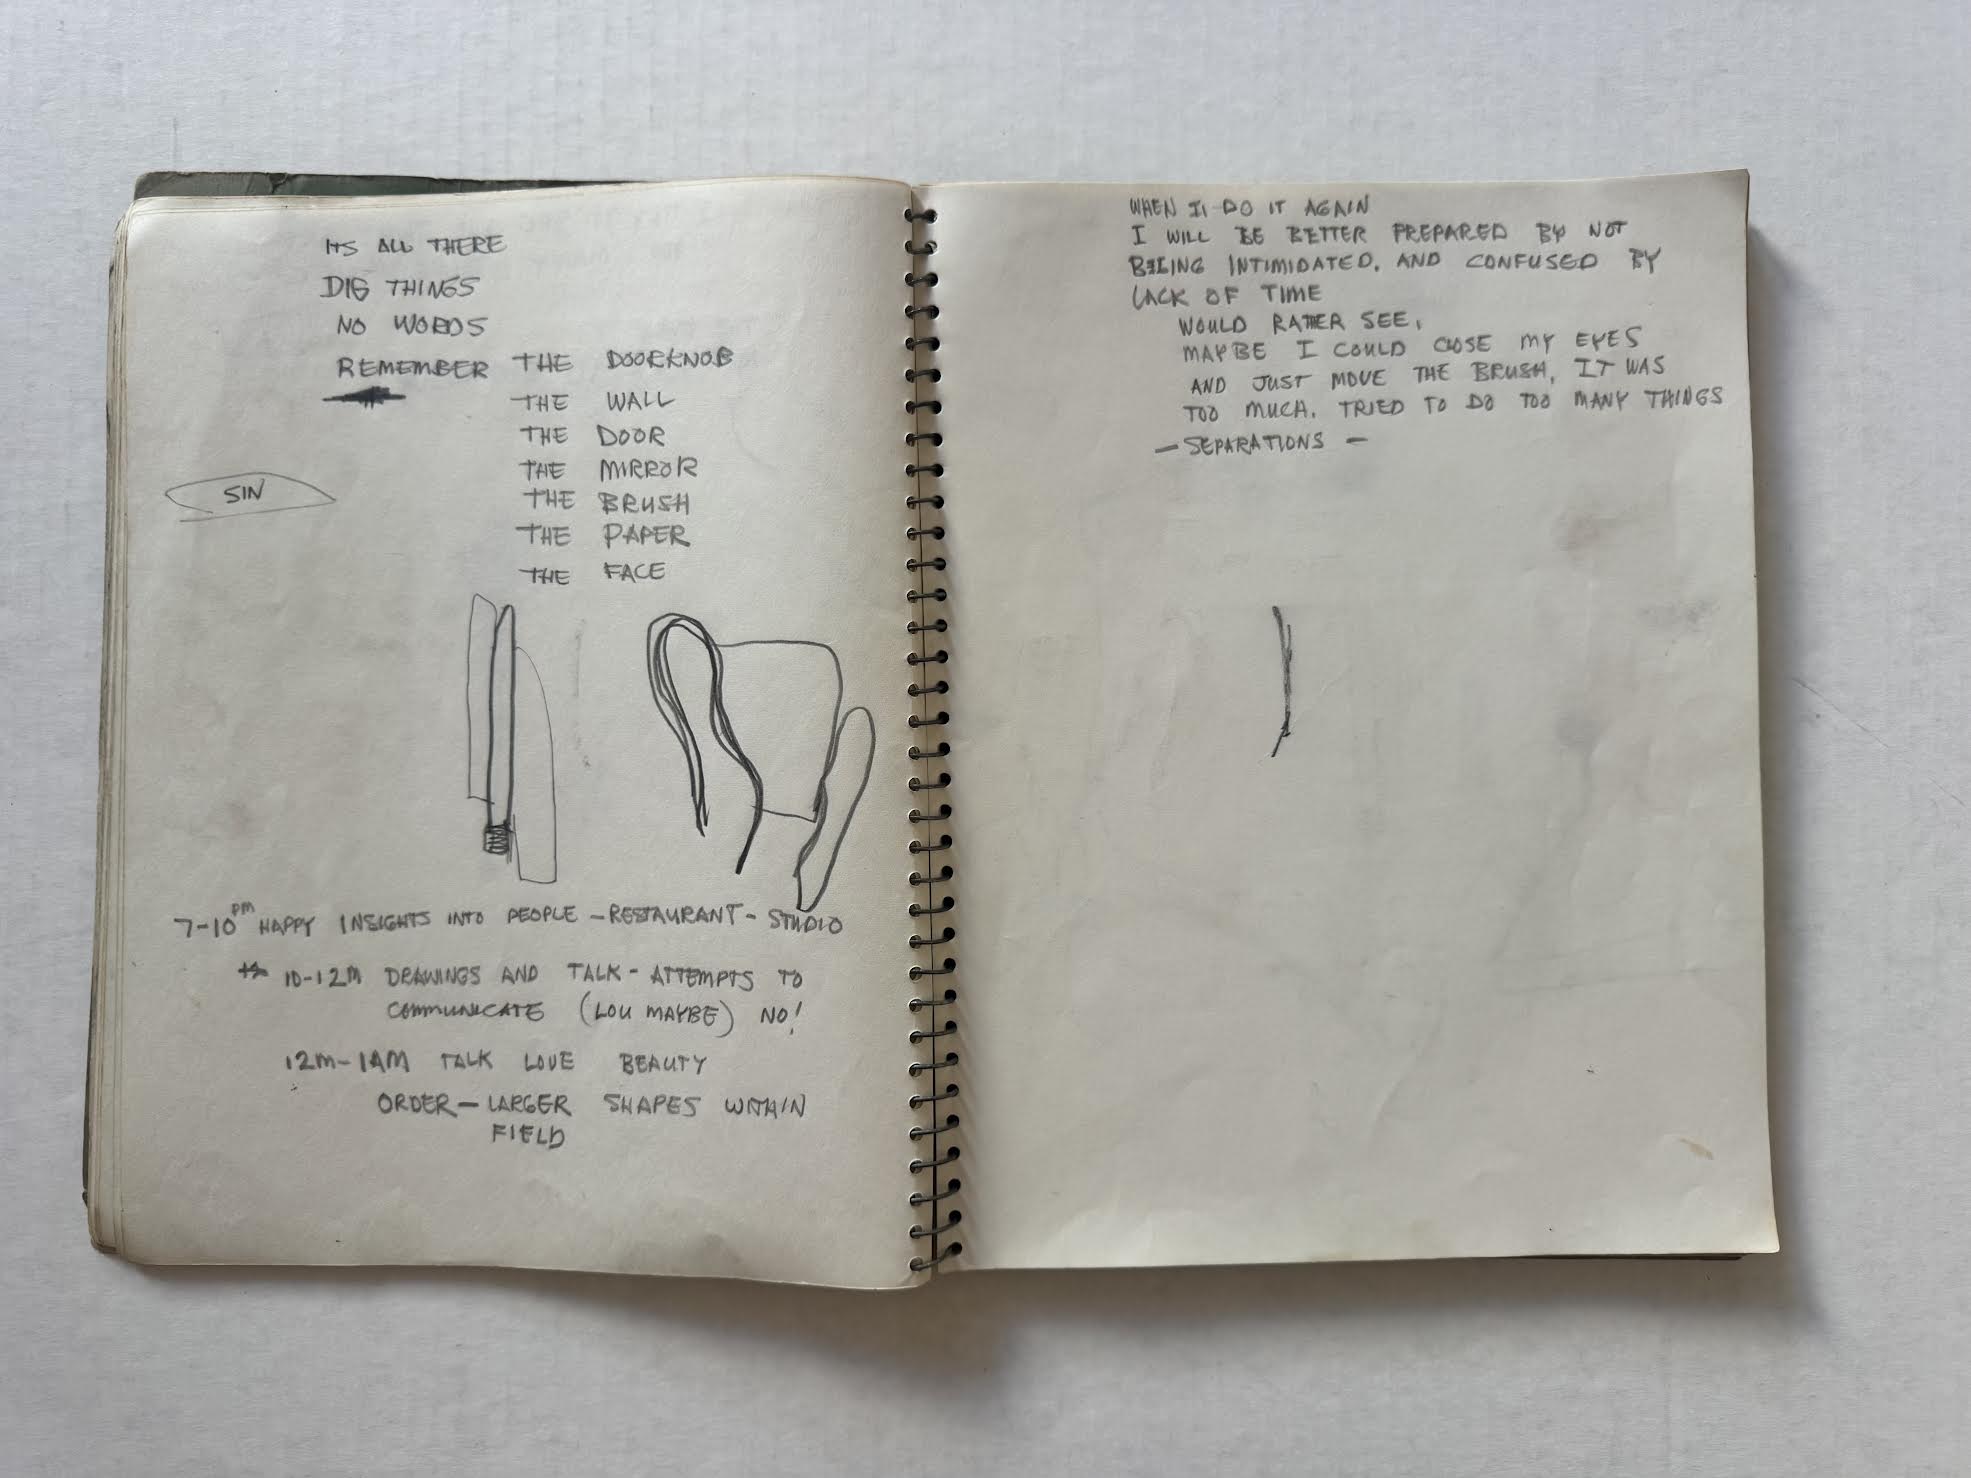 ITS ALL THERE
DIG THINGS
NO WORDS
REMEMBER THE DOORKNOB
THE WALL
THE DOOR
THE MIRROR
SIN
THE BRUSH
THE PAPER
THE FACE
7-10 PM HAPPY INSIGHTS INTO PEOPLE - RESTAURANT - STUDIO
10-12M DRAWINGS AND TALK - ATTEMPTS TO
COMMUNICATE (LOU MAYBE) NO!
12M-1AM TALK LOVE BEAUTY
ORDER - LARGER SHAPES WITHIN
FIELD
WHEN I DO IT AGAIN
I WILL BE BETTER PREPARED BY NOT
BEING INTIMIDATED. AND CONFUSED BY
LACK OF TIME
WOULD RATHER SEE,
MAYBE I COULD CLOSE MY EYES
AND JUST MOVE THE BRUSH, IT WAS
TOO MUCH. TRIED TO DO TOO MANY THINGS
- SEPARATIONS -